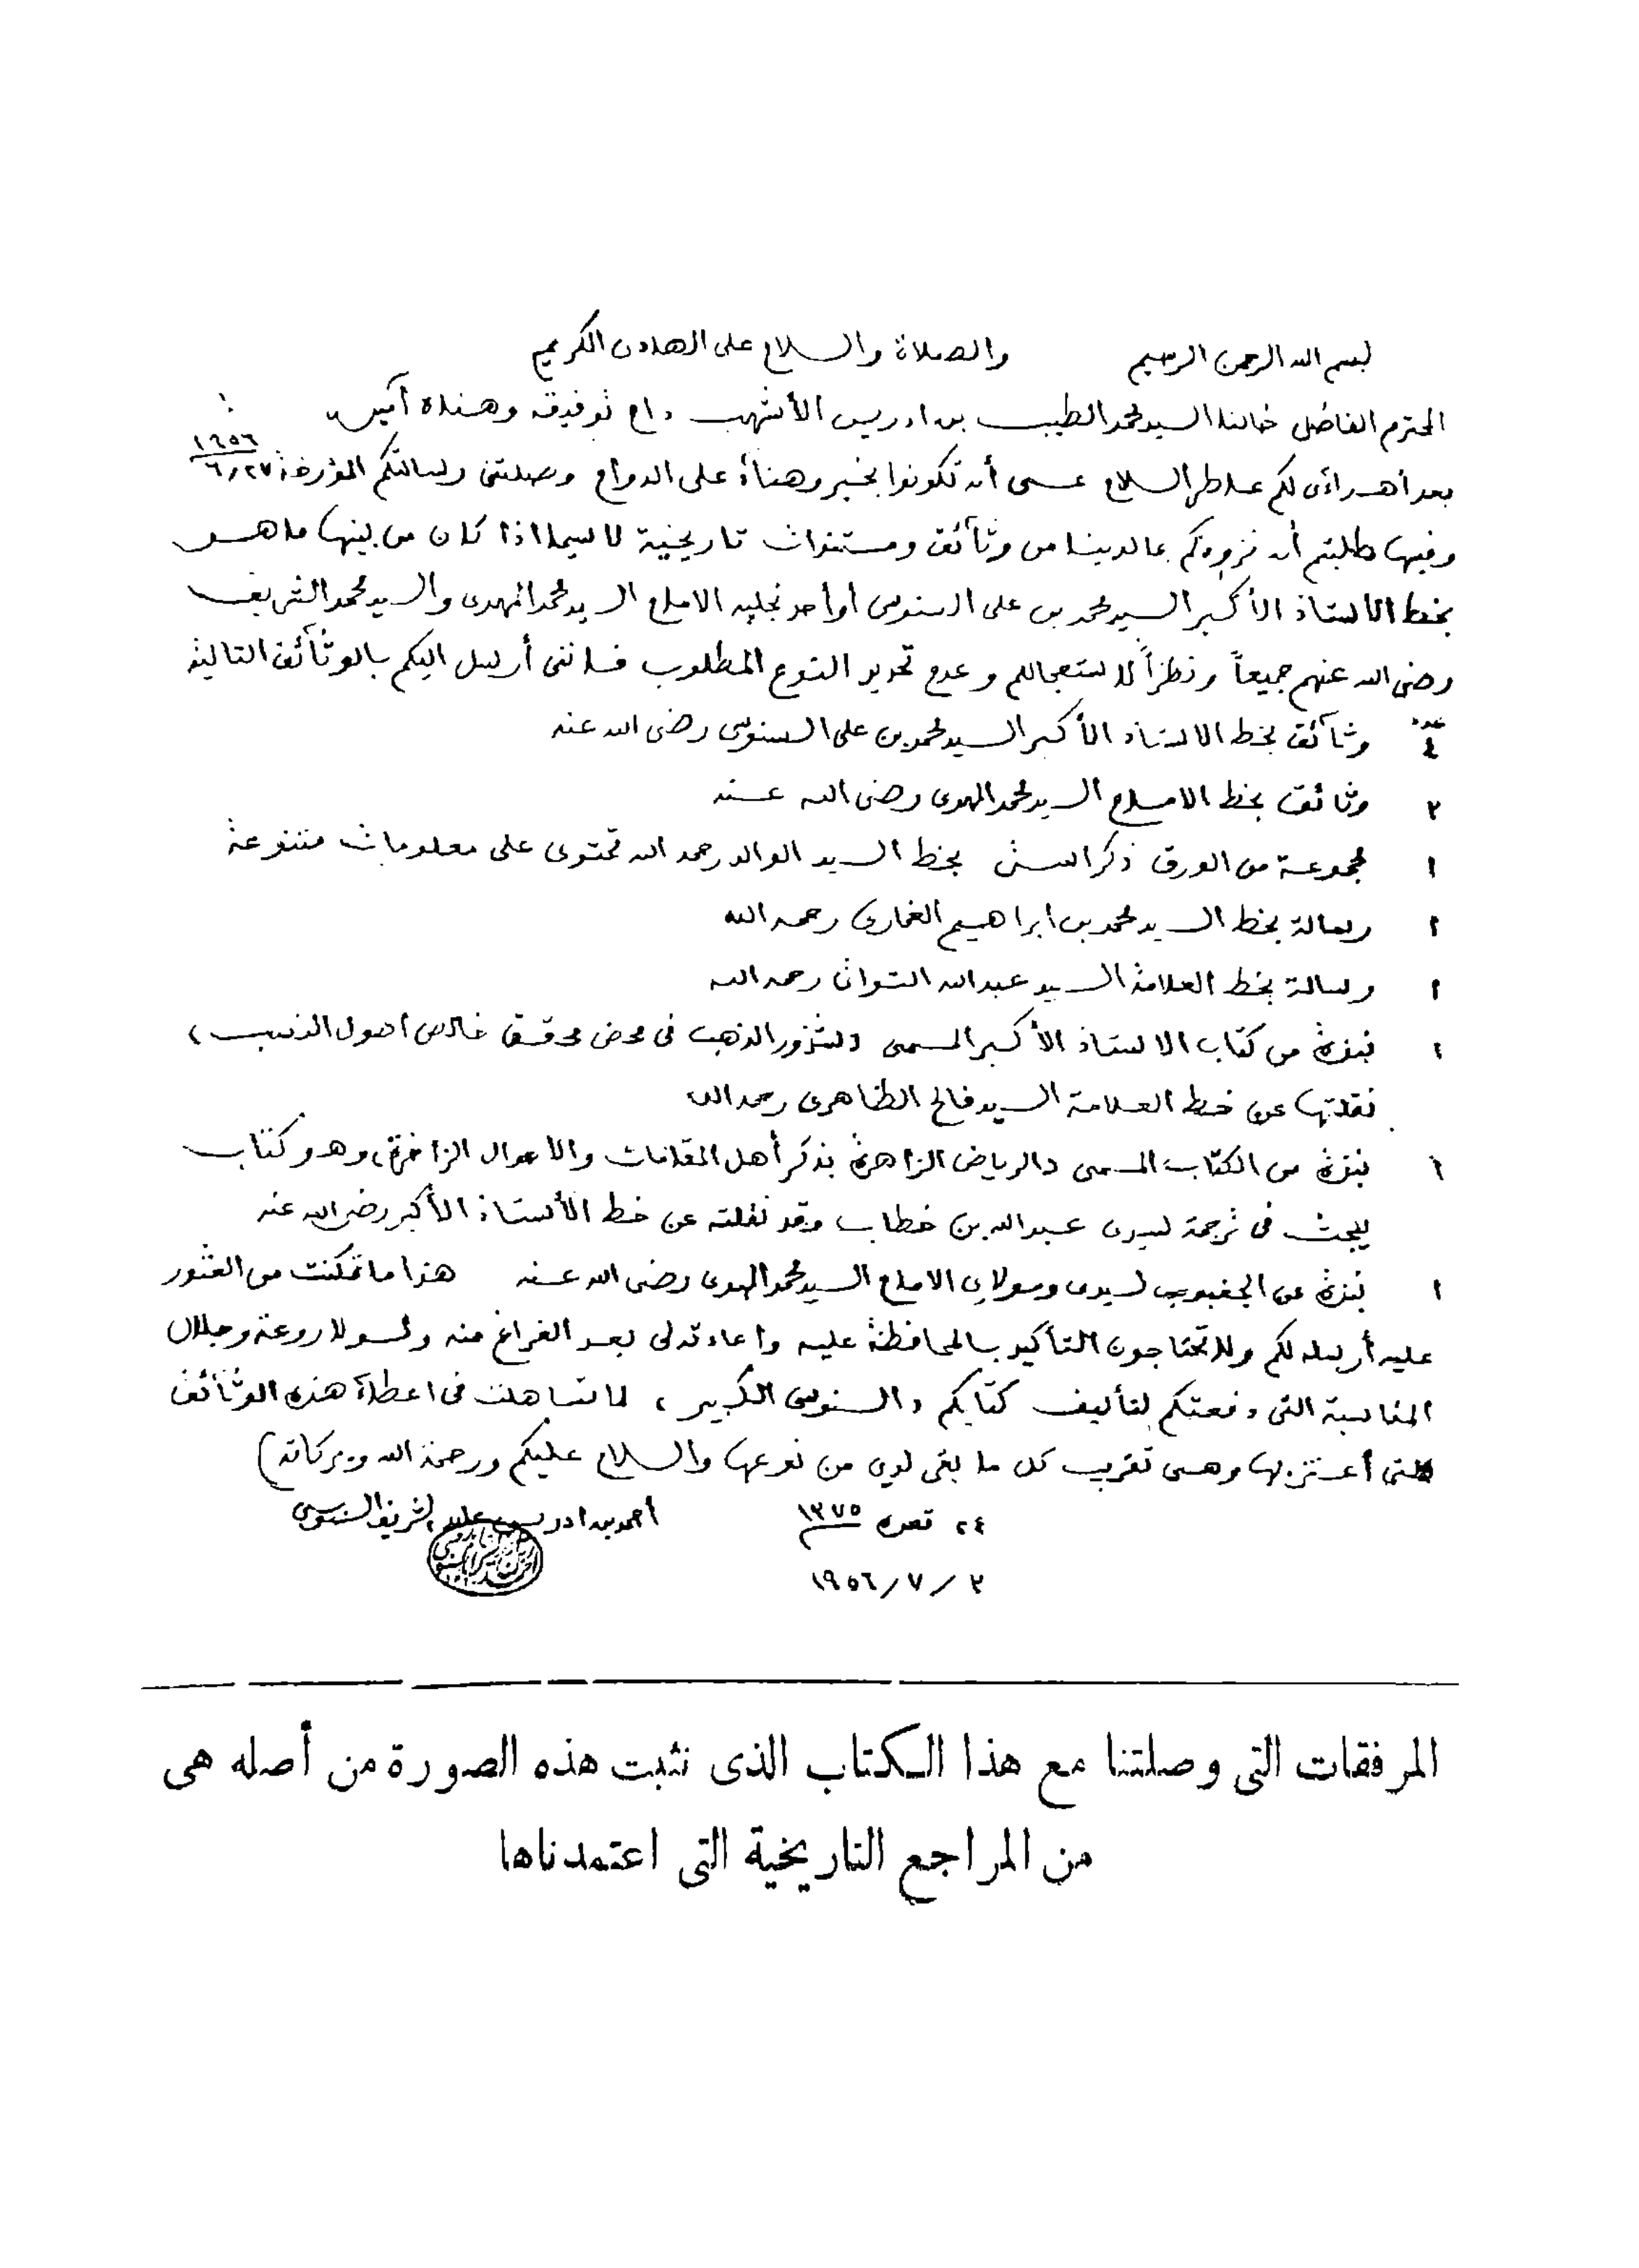 بسم الله الرحمن الرحيم والصلاة والسلام على الهادى الكريم
المحترم الفاضل خالنا السيد محمد الطيب بن ادريس الأشهب دام توفيقه وهناه آمين
بعد اهدائى لكم عاطر السلام عسى أن تكونوا بخير وهناة على الدوام وصلتنى رسالتكم المؤرخة ٦/٢٧ ١٩٥٦
وفيها طلبتم أن نزودكم بما لدينا من وثآئق ومستندات تاريخية لا سيما اذا كان من بينها ما هو
بخط الاستاذ الأكبر السيد محمد بن على السنوسى أو احد نجليه الامام السيد محمد المهدى والسيد محمد الشريف
رضى الله عنهم جميعاً ونظراً لاستعجالكم وعدم تحديد النوع المطلوب فاننى أرسل اليكم بالوثآئق التالية
عدد ٤ وثآئق بخط الاستاذ الأكبر السيد محمد بن على السنوسى رضى الله عنه
٢ وثائق بخط الامام السيد محمد المهدى رضى الله عنه
١ مجموعة من الورق بخط السيد الوالد رحمه الله تحتوى على معلومات متنوعة
١ رسالة بخط السيد محمد بن ابراهيم الغمارى رحمه الله
١ رسالة بخط العلامة السيد عبد الله التواتى رحمه الله
١ نبذة من كتاب الاستاذ الأكبر المسمى (شذور الذهب فى محض محقق خالص اصول النسب)
نقلتها عن خط العلامة السيد فالح الظاهرى رحمه الله
١ نبذة من الكتاب المسمى (الرياض الزاهرة بذكر أهل المقامات والاحوال الزاخرة) وهو كتاب
يبحث فى ترجمة لسيدى عبد الله بن خطاب وقد نقلته عن خط الأستاذ الأكبر رضى الله عنه
١ نبذة عن الجغبوب لسيدى ومولاى الامام السيد محمد المهدى رضى الله عنه هذا ما تمكنت من العثور
عليه أرسله لكم ولا تحتاجون التأكيد بالمحافظة عليه واعادته لى بعد الفراغ منه ولولا روعة وجلال
المناسبة التى دفعتكم لتأليف كتابكم (السنوسى الكبير) لما تساهلت فى اعطاء هذه الوثآئق
التى أعتز بها وهى تقريب كل ما بقى لدى من نوعها والسلام عليكم ورحمة الله وبركاته)
٢٤ قعده ١٣٧٥ أحمد بن ادريس الشريف السنوسى
٢ / ٧ / ١٩٥٦
المرفقات التى وصلتنا مع هذا الكتاب الذى نثبت هذه الصورة من أصله هى
من المراجع التاريخية التى اعتمدناها